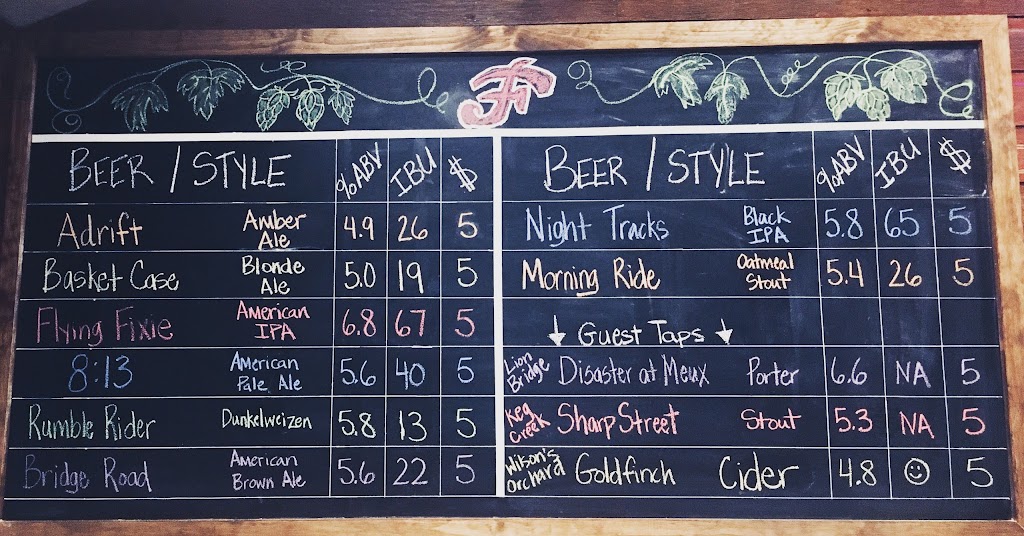 Fr
BEER / STYLE %ABV IBU $
Adrift Amber Ale 4.9 26 5
Basket Case Blonde Ale 5.0 19 5
Flying Fixie American IPA 6.8 67 5
8:13 American Pale Ale 5.6 40 5
Rumble Rider Dunkelweizen 5.8 13 5
Bridge Road American Brown Ale 5.6 22 5
BEER / STYLE %ABV IBU $
Night Tracks Black IPA 5.8 65 5
Morning Ride Oatmeal Stout 5.4 26 5
↓ Guest Taps ↓
Lion Bridge Disaster at Meux Porter 6.6 NA 5
Keg Creek Sharp Street Stout 5.3 NA 5
Wilson's Orchard Goldfinch Cider 4.8 ☺ 5